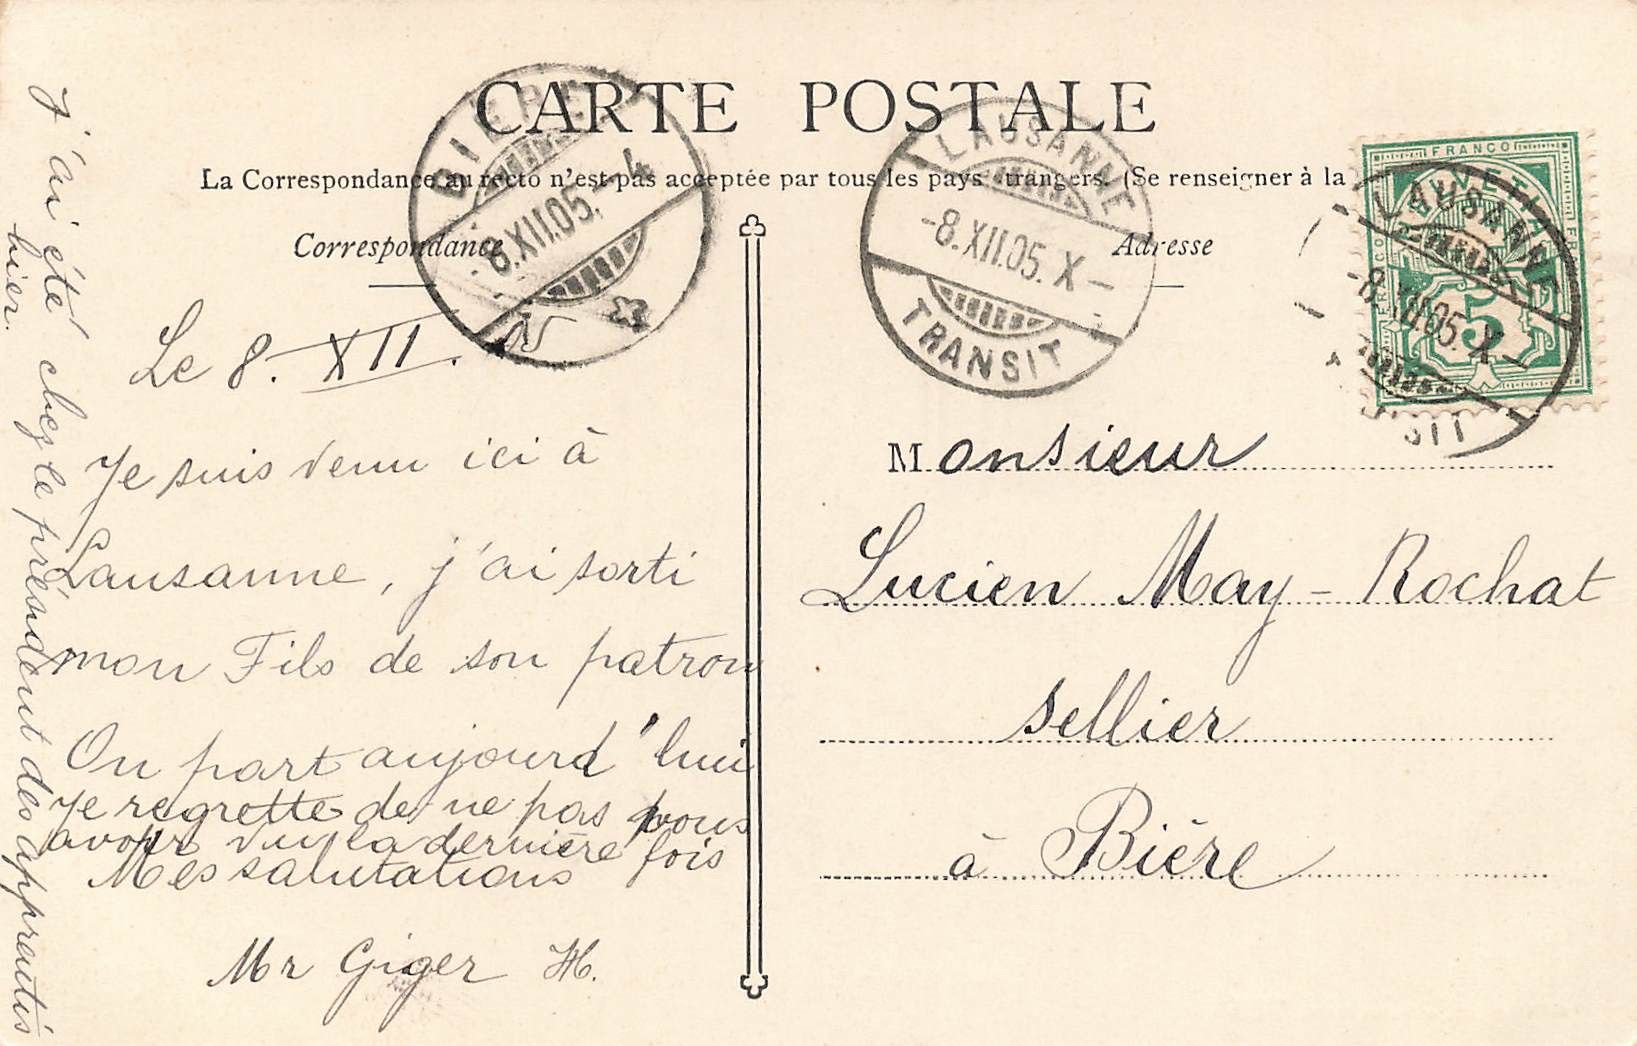 CARTE POSTALE
La Correspondance au recto n'est pas acceptée par tous les pays étrangers. (Se renseigner à la
Correspondance
Adresse
BIÈRE
-8.XII.05.-4
LAUSANNE
-8.XII.05. X-
TRANSIT
FRANCO
HELVETIA
5
LAUSANNE
-8.XII.05. X-
SIT
Le 8. XII.
Je suis venu ici à
Lausanne, j'ai sorti
mon Fils de son patron
On part aujourd'hui
Je regrette de ne pas vous
avoir vu la dernière fois
Mes salutations
Mr Giger H.
J'ai été chez le président des apprentis
hier.
Monsieur
Lucien May-Rochat
sellier
à Bière